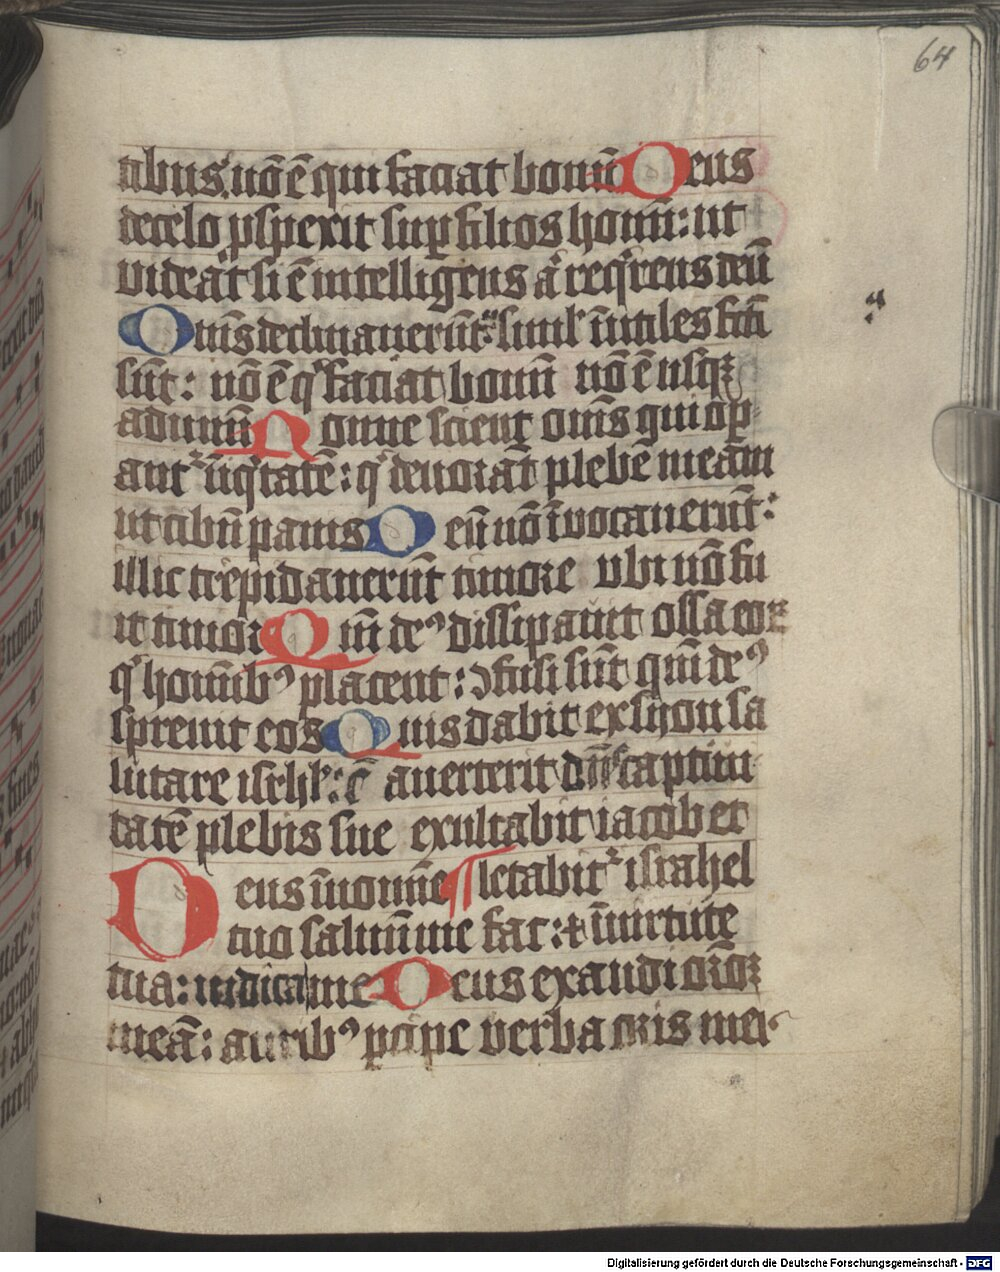 64
tibus nō ē qui faciat bonū Deus
de celo ꝑspexit suꝑ filios hoīm: ut
videāt si ē intelligens aͭ reqͥrens deū
Om̄s declinauerūt: simlʼ īutiles fc̄i
sūt: nō ē qͥ faciat bonū nō ē usqꝫ
ad unū Nonne scient om̄s qui oꝑ
ant᷑ īiqͥtatē: qͥ deuorāt plebē meam
ut cibū panis Deū nō īuocauerūt:
illic trepidauerūt timore vbi nō fu
it timor Qm̄ deꝰ dissipauit ossa eoꝝ
qͥ homībꝰ placent: ꝯfusi sūt qm̄ deꝰ
spreuit eos Quis dabit ex syon sa
lutare isrhl: cū auerterit dn̄s captiui
tatē plebis sue exultabit iacob et
Deus ī nomīe ¶ letabit᷑ israhel
tuo saluū me fac: ⁊ ī uirtute
tua: iudica me Deus exaudi or̄oꝫ
meā: auribꝰ ꝑcipe verba oris mei
Digitalisierung gefördert durch die Deutsche Forschungsgemeinschaft - DFG